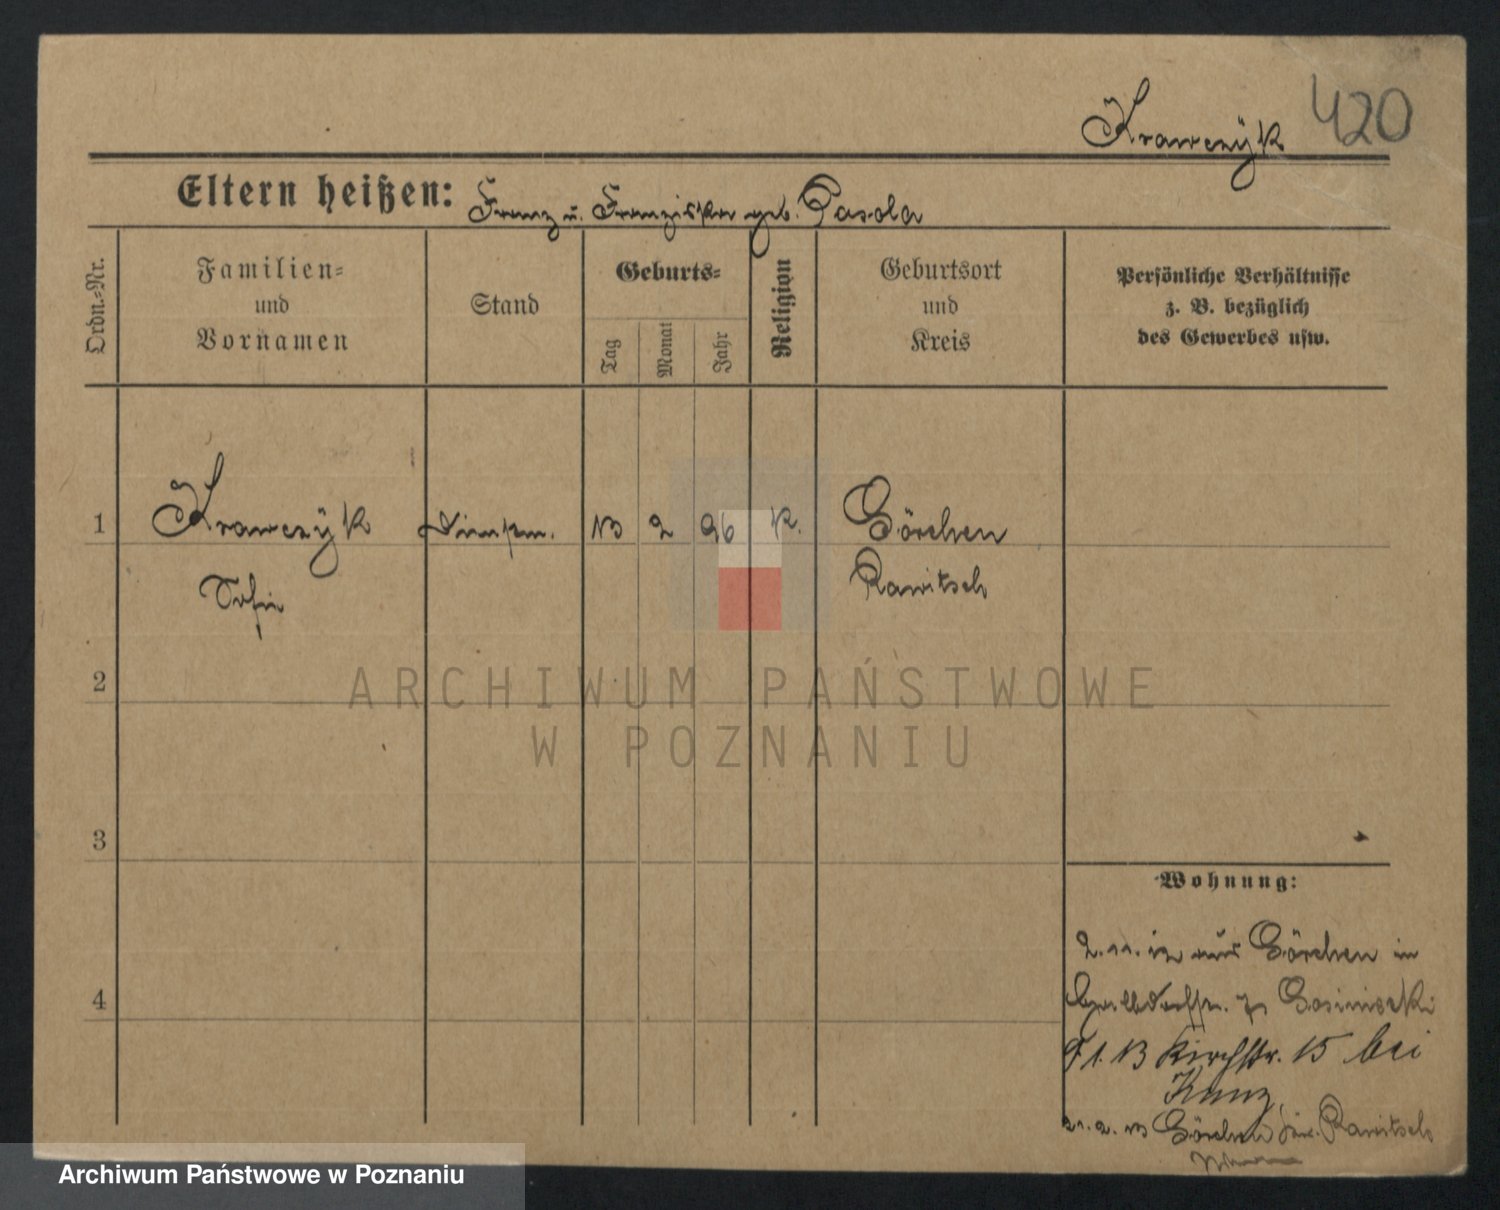 Krawczÿk 420
Eltern heißen: Franz u. Franziska geb. Pasola
Ordn.-Nr.
Familien-
und
Vornamen
Stand
Geburts-
Tag
Monat
Jahr
Religion
Geburtsort
und
Kreis
Persönliche Verhältnisse
z. B. bezüglich
des Gewerbes usw.
1 Krawczÿk 13 2 96 K. Görchen
Sofie Rawitsch
2
ARCHIWUM PAŃSTWOWE
W POZNANIU
3
4
Wohnung:
2.11.12 aus Görchen in
7 Gosiniecki
1. 13 Kirchstr. 15 bei
Kunz
21.2.13 Görchen Kr. Rawitsch
Archiwum Państwowe w Poznaniu